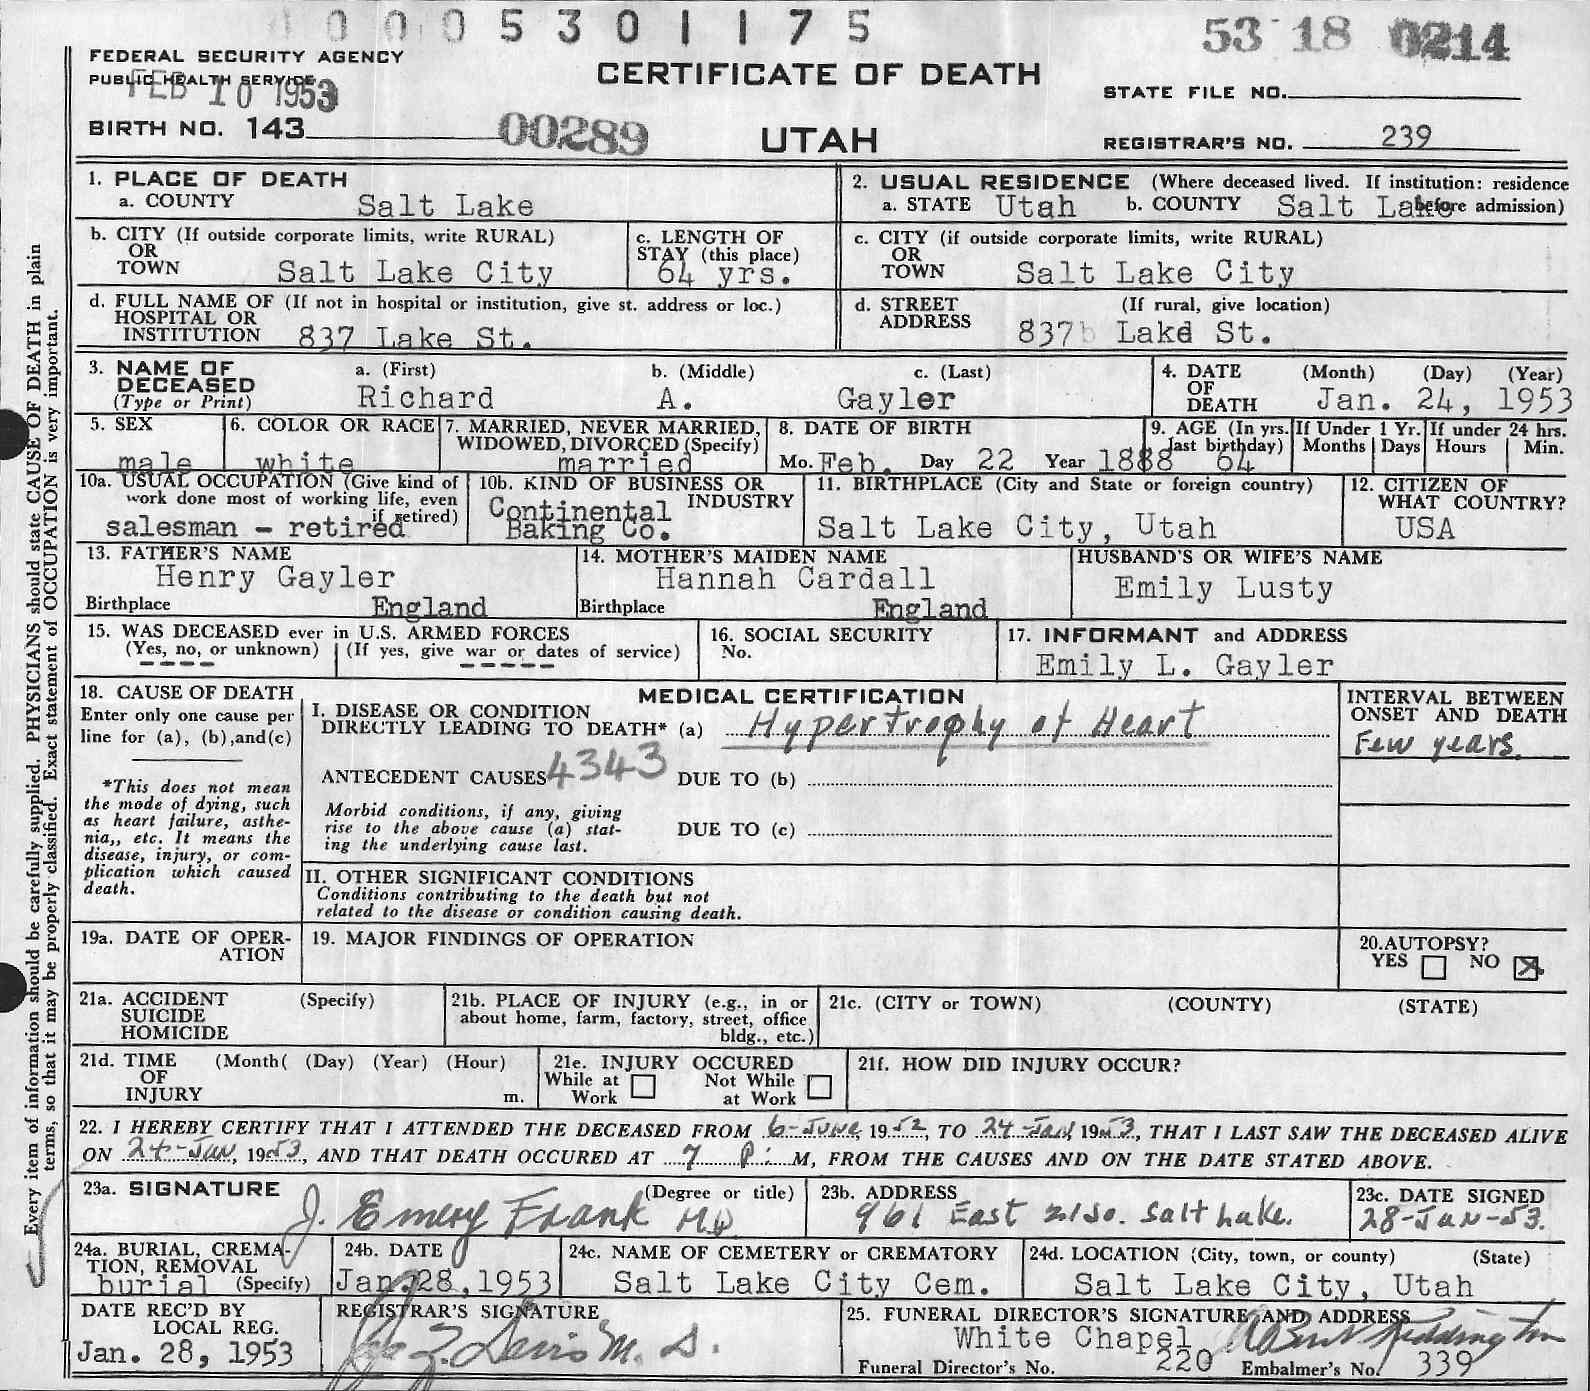 0005301175
53 18 0214
FEDERAL SECURITY AGENCY
PUBLIC HEALTH SERVICE
FEB 10 1953
CERTIFICATE OF DEATH
STATE FILE NO.
BIRTH NO. 143
00289
UTAH
REGISTRAR'S NO. 239
1. PLACE OF DEATH
a. COUNTY Salt Lake
2. USUAL RESIDENCE (Where deceased lived. If institution: residence before admission)
a. STATE Utah b. COUNTY Salt Lake
b. CITY (If outside corporate limits, write RURAL)
OR
TOWN Salt Lake City
c. LENGTH OF
STAY (this place)
64 yrs.
c. CITY (if outside corporate limits, write RURAL)
OR
TOWN Salt Lake City
d. FULL NAME OF (If not in hospital or institution, give st. address or loc.)
HOSPITAL OR
INSTITUTION 837 Lake St.
d. STREET (If rural, give location)
ADDRESS 837 Lake St.
3. NAME OF
DECEASED
(Type or Print)
a. (First) b. (Middle) c. (Last)
Richard A. Gayler
4. DATE (Month) (Day) (Year)
OF
DEATH Jan. 24, 1953
5. SEX
male
6. COLOR OR RACE
white
7. MARRIED, NEVER MARRIED,
WIDOWED, DIVORCED (Specify)
married
8. DATE OF BIRTH
Mo. Feb. Day 22 Year 1888
9. AGE (In yrs.
last birthday)
64
If Under 1 Yr.
Months Days
If under 24 hrs.
Hours Min.
10a. USUAL OCCUPATION (Give kind of
work done most of working life, even
if retired)
salesman - retired
10b. KIND OF BUSINESS OR
INDUSTRY
Continental
Baking Co.
11. BIRTHPLACE (City and State or foreign country)
Salt Lake City, Utah
12. CITIZEN OF
WHAT COUNTRY?
USA
13. FATHER'S NAME
Henry Gayler
Birthplace England
14. MOTHER'S MAIDEN NAME
Hannah Cardall
Birthplace England
HUSBAND'S OR WIFE'S NAME
Emily Lusty
15. WAS DECEASED ever in U.S. ARMED FORCES
(Yes, no, or unknown) (If yes, give war or dates of service)
---- -----
16. SOCIAL SECURITY
No.
17. INFORMANT and ADDRESS
Emily L. Gayler
18. CAUSE OF DEATH
Enter only one cause per
line for (a), (b),and(c)
*This does not mean
the mode of dying, such
as heart failure, asthe-
nia,, etc. It means the
disease, injury, or com-
plication which caused
death.
MEDICAL CERTIFICATION
I. DISEASE OR CONDITION
DIRECTLY LEADING TO DEATH* (a) Hypertrophy of Heart
ANTECEDENT CAUSES 4343 DUE TO (b)
Morbid conditions, if any, giving
rise to the above cause (a) stat-
ing the underlying cause last.
DUE TO (c)
II. OTHER SIGNIFICANT CONDITIONS
Conditions contributing to the death but not
related to the disease or condition causing death.
INTERVAL BETWEEN
ONSET AND DEATH
Few years.
19a. DATE OF OPER-
ATION
19. MAJOR FINDINGS OF OPERATION
20. AUTOPSY?
YES NO X
21a. ACCIDENT (Specify)
SUICIDE
HOMICIDE
21b. PLACE OF INJURY (e.g., in or
about home, farm, factory, street, office
bldg., etc.)
21c. (CITY or TOWN) (COUNTY) (STATE)
21d. TIME (Month( (Day) (Year) (Hour)
OF
INJURY m.
21e. INJURY OCCURED
While at Work Not While at Work
21f. HOW DID INJURY OCCUR?
22. I HEREBY CERTIFY THAT I ATTENDED THE DECEASED FROM 6-June, 1952, TO 24-Jan, 1953, THAT I LAST SAW THE DECEASED ALIVE
ON 24-Jan, 1953, AND THAT DEATH OCCURED AT 7 P. M, FROM THE CAUSES AND ON THE DATE STATED ABOVE.
23a. SIGNATURE (Degree or title)
J. Emery Frank MD
23b. ADDRESS
961 East 21 So. Salt Lake.
23c. DATE SIGNED
28-Jan-53.
24a. BURIAL, CREMA-
TION, REMOVAL
burial (Specify)
24b. DATE
Jan. 28, 1953
24c. NAME OF CEMETERY or CREMATORY
Salt Lake City Cem.
24d. LOCATION (City, town, or county) (State)
Salt Lake City, Utah
DATE REC'D BY
LOCAL REG.
Jan. 28, 1953
REGISTRAR'S SIGNATURE
25. FUNERAL DIRECTOR'S SIGNATURE AND ADDRESS
White Chapel
Funeral Director's No. 220 Embalmer's No. 339
Every item of information should be carefully supplied. PHYSICIANS should state CAUSE OF DEATH in plain
terms, so that it may be properly classified. Exact statement of OCCUPATION is very important.